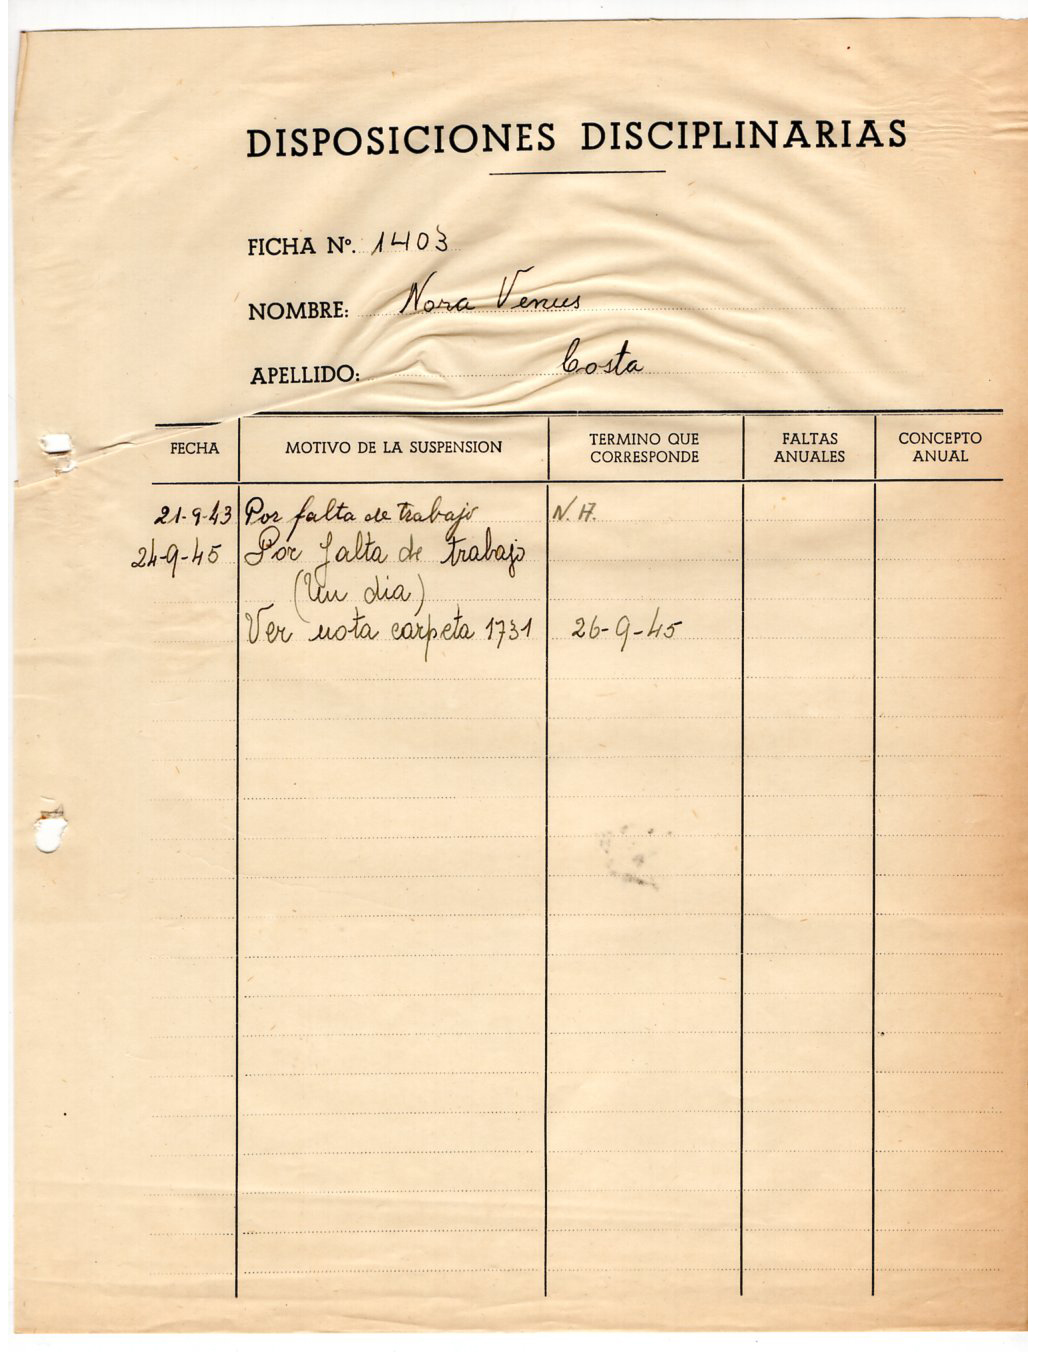 DISPOSICIONES DISCIPLINARIAS
FICHA Nº. 1403
NOMBRE: Nora Venus
APELLIDO: Costa
FECHA MOTIVO DE LA SUSPENSION TERMINO QUE CORRESPONDE FALTAS ANUALES CONCEPTO ANUAL
21-9-43 Por falta de trabajo N.H.
24-9-45 Por falta de trabajo
(Un dia)
Ver nota carpeta 1731 26-9-45